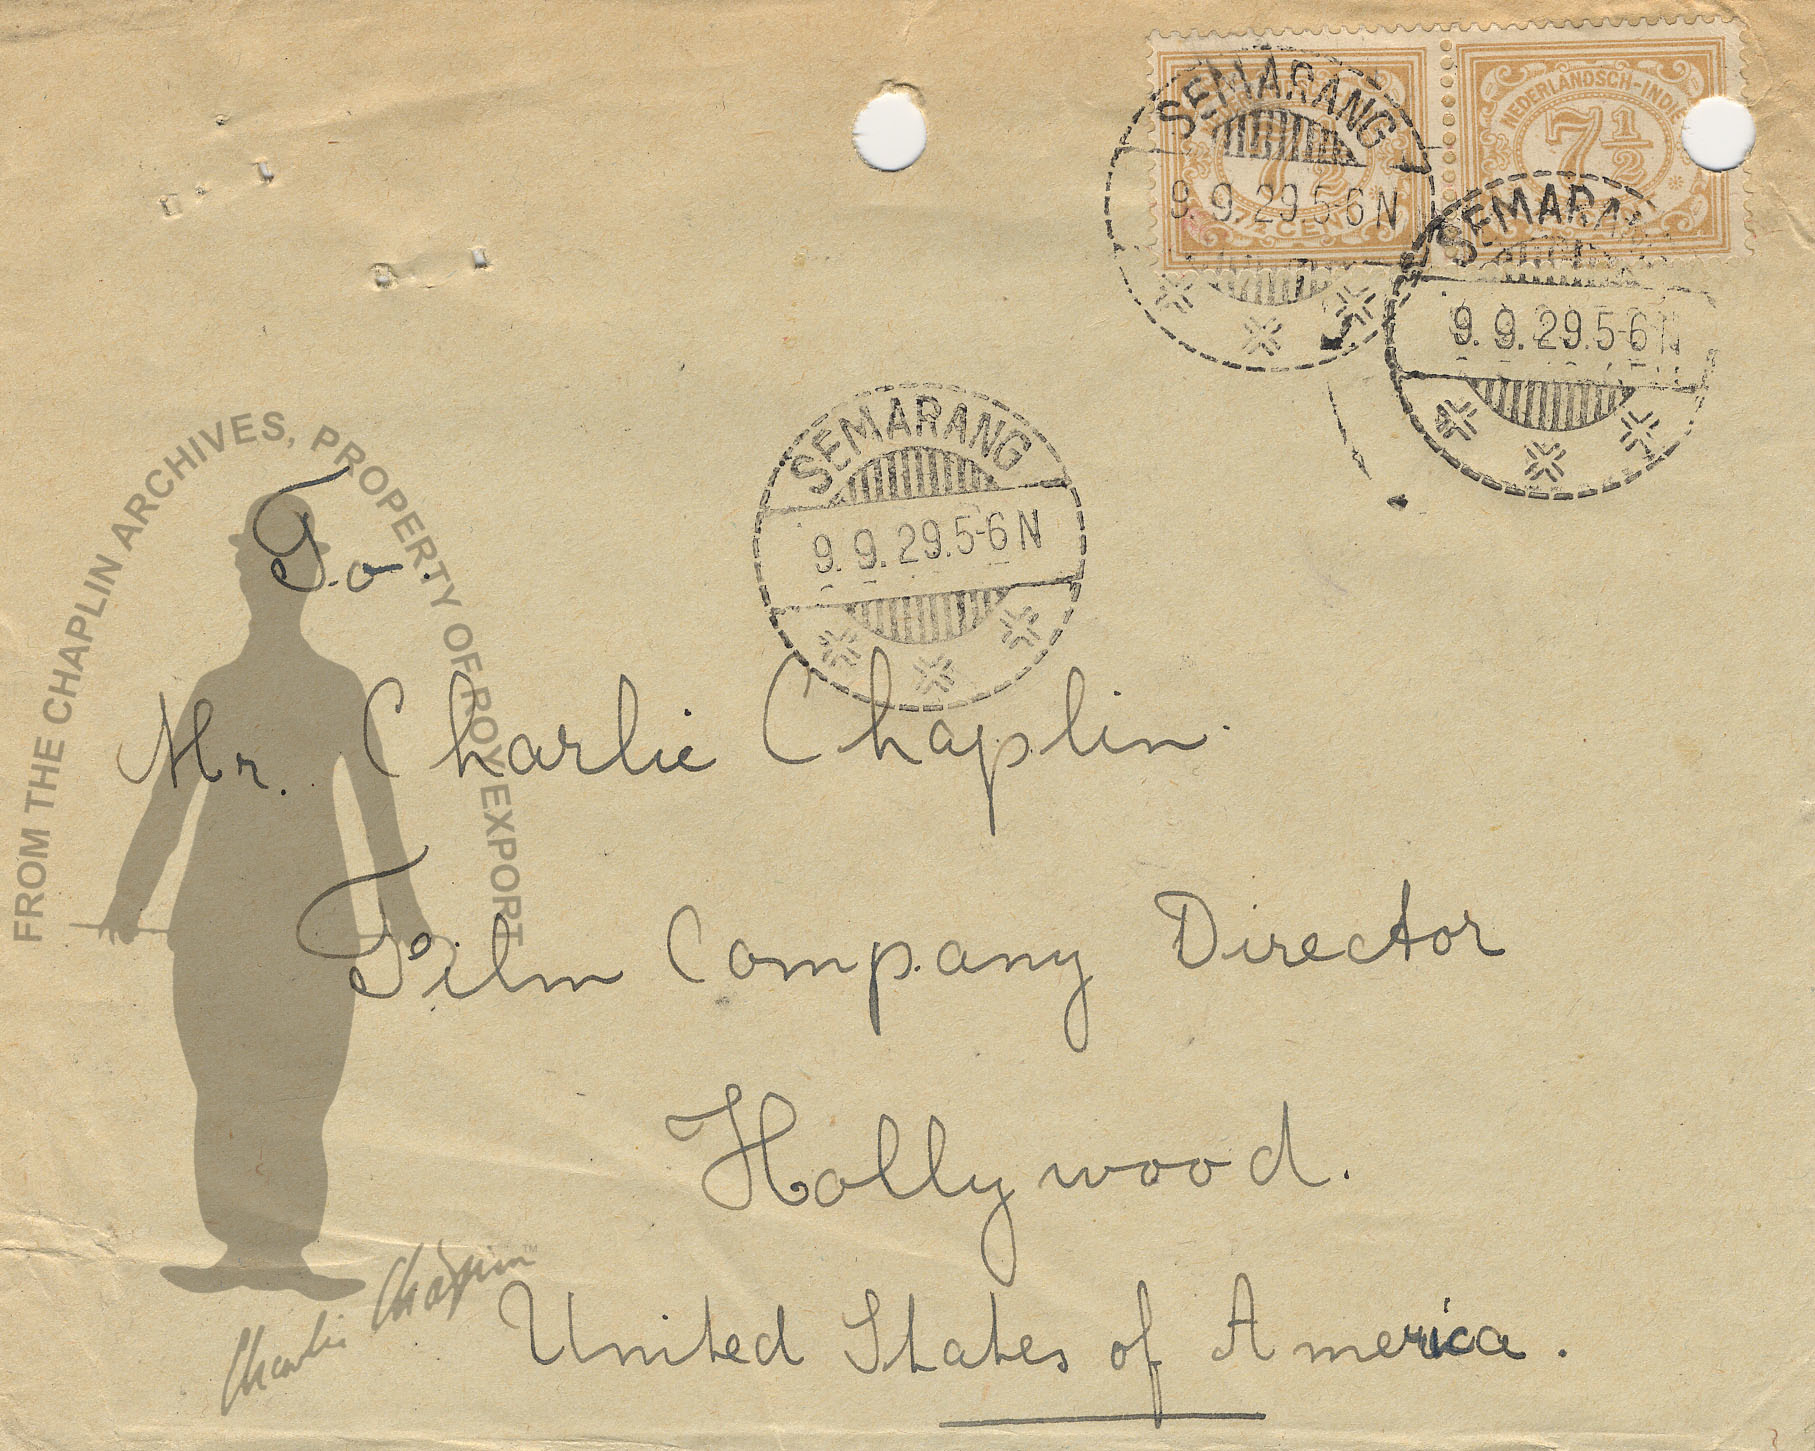 NEDERLANDSCH-INDIE
7½ 7½
CENT
SEMARANG
9.9.29.5-6N
SEMARANG
9.9.29.5-6N
SEMARANG
9.9.29.5-6N
FROM THE CHAPLIN ARCHIVES, PROPERTY OF ROY EXPORT
To.
Mr. Charlie Chaplin.
Film Company Director
Hollywood.
United States of America.
Charlie Chaplin